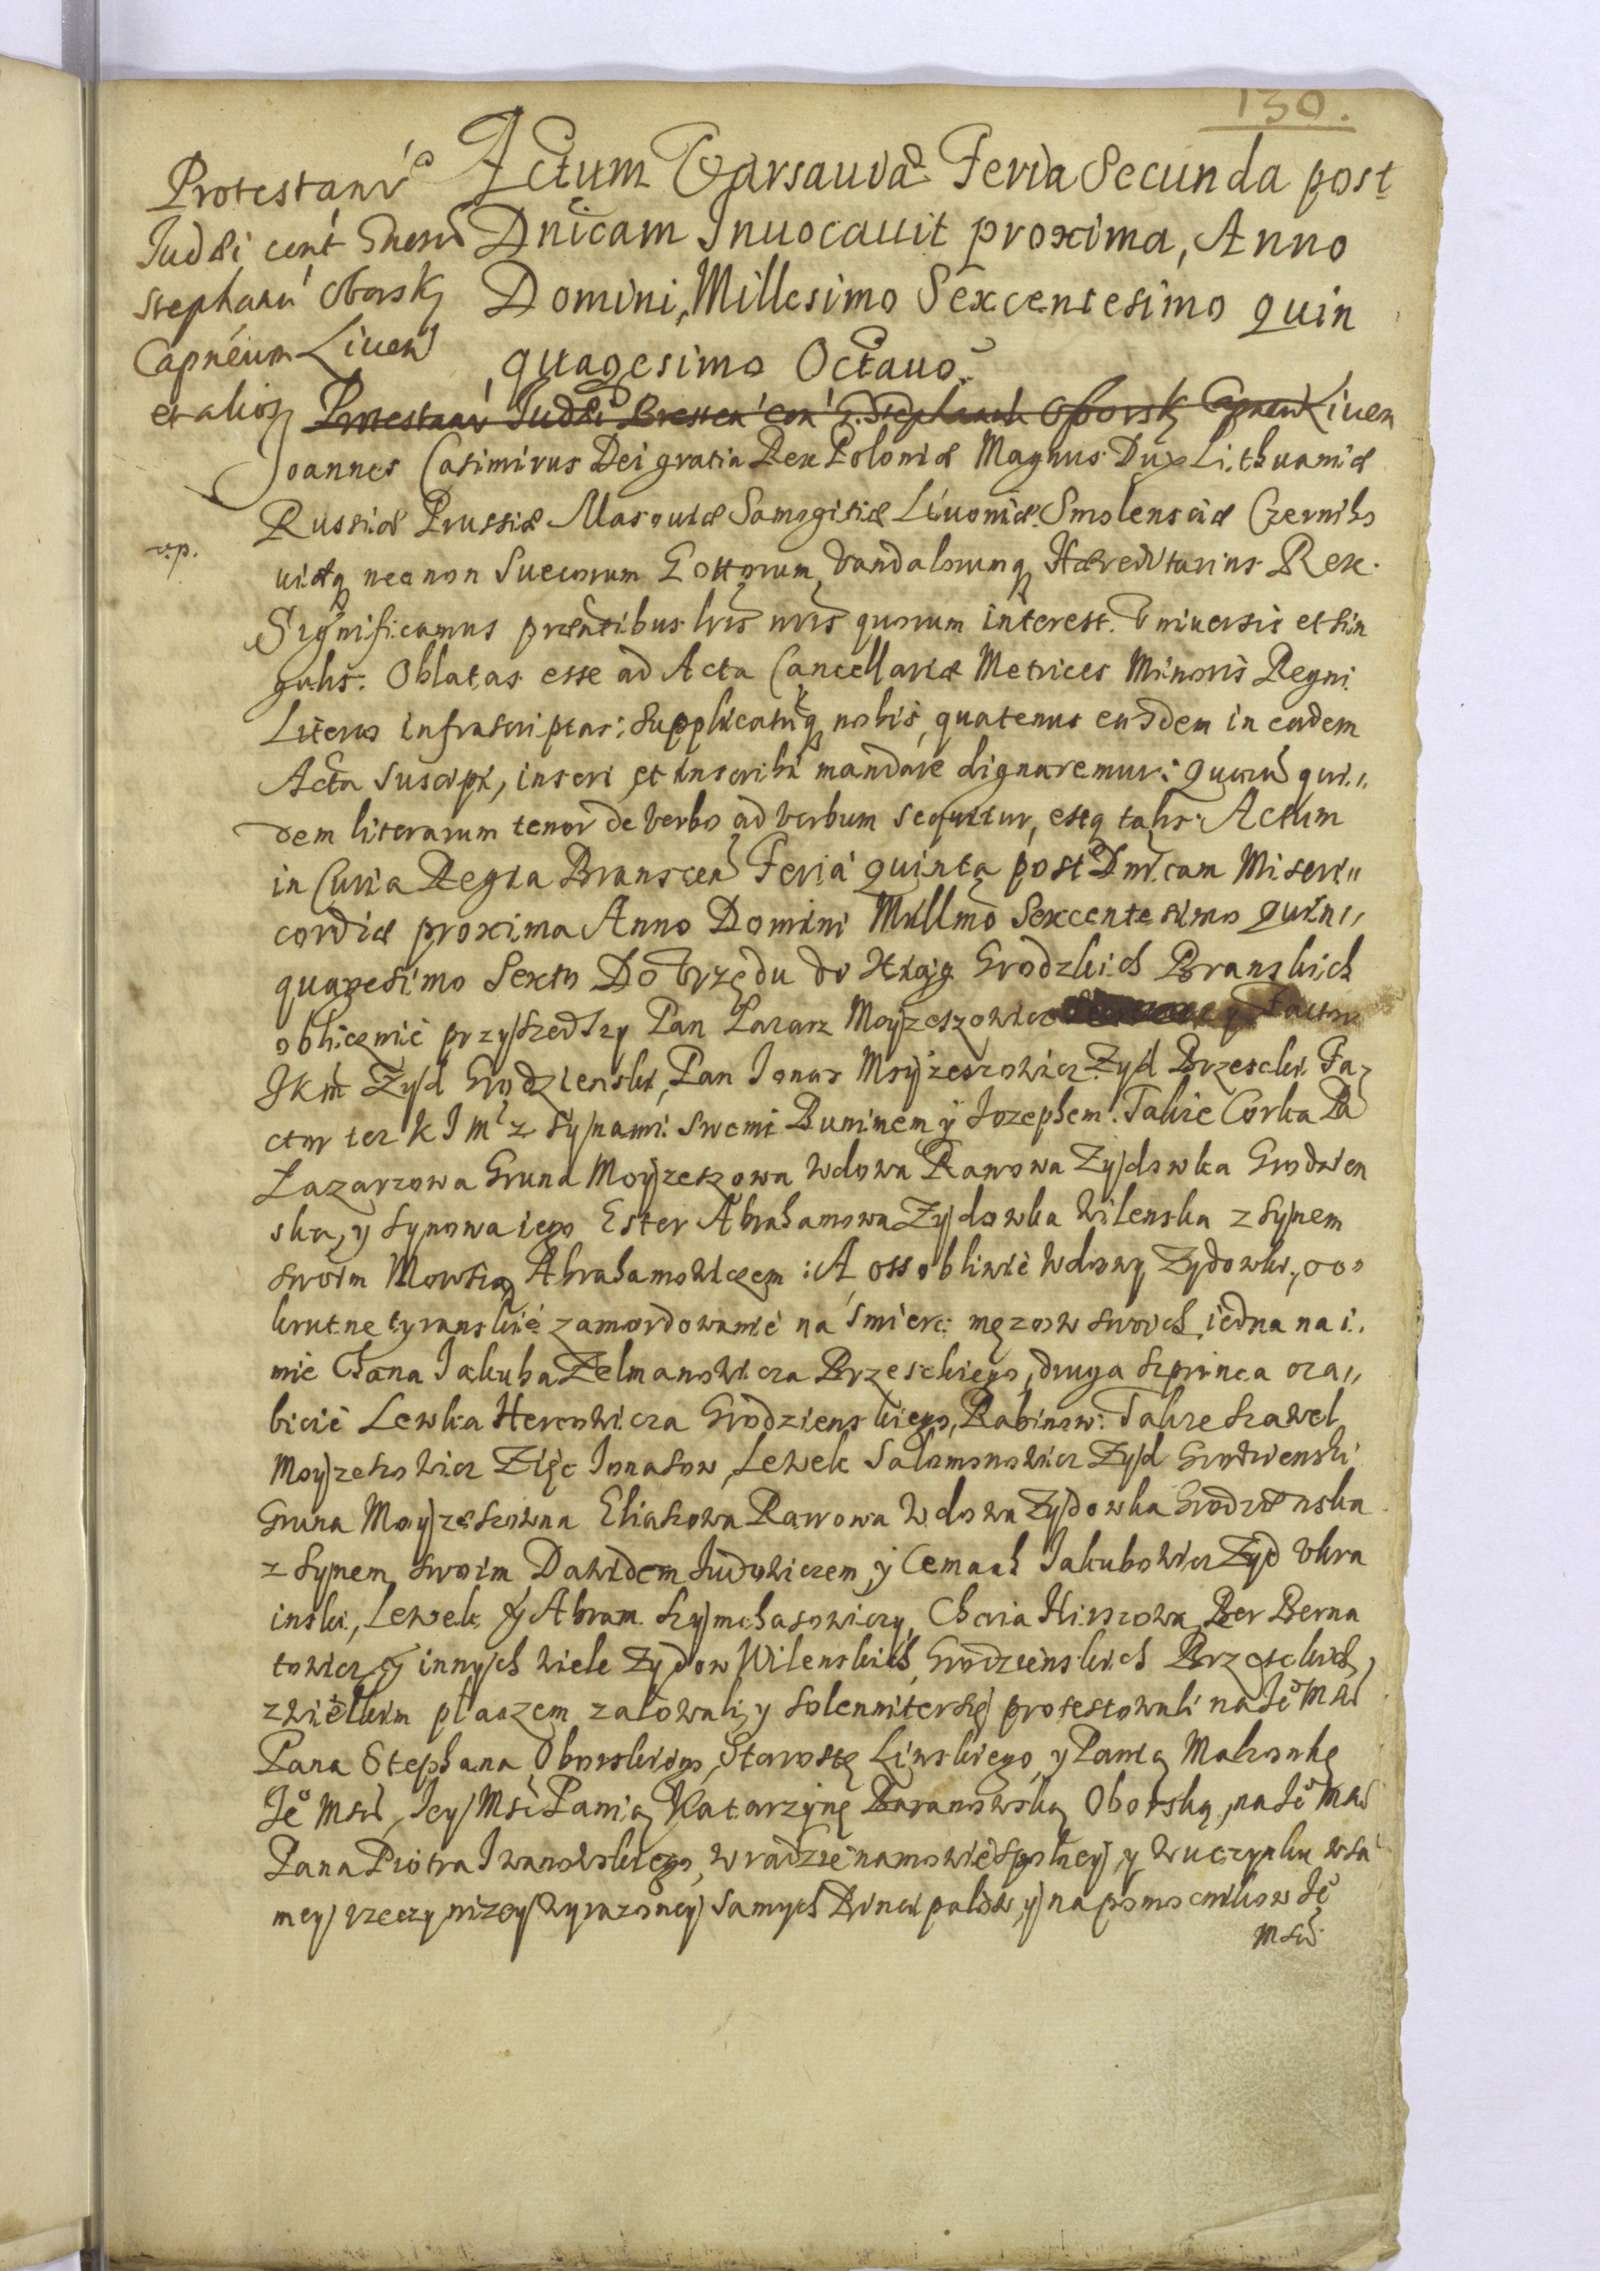 130.
Protestanr̃
Judæi cont̃ Gñosũ
Stephanũ Oborsky
Capnéum Liuen̄
et alios
Actum Varsauiæ Feria Secunda post
Dnicam Inuocauit proxima, Anno
Domini, Millesimo Sexcentesimo quin
quagesimo Octauo.
Protestanr̃ Judæi Bresten̄ con̄ G. Stephanū Oborsky Capnen̄ Liuen
Joannes Casimirus Dei gratia Rex Poloniæ Magnus Dux Lithuaniæ
Russiæ Prussiæ Masouiæ Samogitiæ Liuoniæ Smolensciæ Czerniho
np.
uiæq necnon Suecorum Gottorum, Vandalorumq Hæreditarius Rex.
Significamus præñtibus lris nris quorum interest. Vniuersis et sin
gulis. Oblatas esse ad Acta Cancellariæ Metrices Minoris Regni
Literas infrascriptas: Supplicatũq nobis, quatenus easdem in eadem
Acta suscipi, inseri et inscribi mandare dignaremur: Quarũ qui„
dem literarum tenor de verbo ad verbum sequitur, estq talis. Actum
in Curia Regia Branscen̄ Feria quinta post Dnicam Miseri„
cordiæ proxima Anno Domini Millmo Sexcentesimo quin„
quagesimo Sexto Do Vrzędu do Xiąg Grodzkich Branskich
oblicznie przyszedszy Pan Lazarz Moyzeszowicz y Factor
JKm Zyd Grodzienski, Pan Jonas Moyzeszowicz Zyd Brzeski Fa„
ctor tez K J Mci z synami swemi Buninem y Jozephem. Takze Corka Pa
Lazarzowa Gruna Moyzeszowa wdowa Rawowa Zydowka Grodzien
ska, y synowa iego Ester Abrahamowa Zydowka Wilenska z synem
swoim Mowszą Abrahamowiczem: A ossobliwie wdowy Zydowki, oo
krutne tyranskie zamordowanie na smierc męzow swoich, iedna na i„
mie Chana Jakuba Zelmanowicza Brzeskiego, druga Szprinca o za„
bicie Lewka Hercowicza Grodzienskiego, Rabinow: Takze Szawel
Moyzeszowicz Zięc Jonasow, Lewek Salomonowicz Zyd Grodzienski
Gruna Moyzeszowna Eliaszowa Rawowa wdowa Zydowka Grodzienska
z synem swoim Dawidem Judowiczem, y Cemach Jakubowicz Zyd Vkra
inski, Lewek y Abram Szymchasowiczy, Choria Hirszowa, Ber Berna
towicz y innych wiele Zydow Wilenskich, Grodzienskich Brzeskich,
z wielkim płaczem załowali, y solenniter się protestowali na Je͠ Mści
Pana Stephana Oborskiego, Starostę Liwskiego, y Panią Małzonkę
Je͠ Mści, Jey Mści Panią Katarzynę Baranowską Oborską, na Je͠ Mści
Pana Piotra Iwanowskiego, w radzie namowie spolney, y w uczynku w sa
mey rzeczy nizey wyrazoney samych Principalow, y na pomocnikow Je͠
Mści